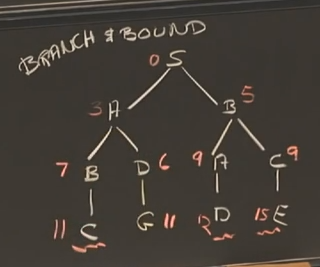 BRANCH & BOUND
0 S
3 A B 5
7 B D 6 9 A C 9
11 C G 11 12 D 15 E